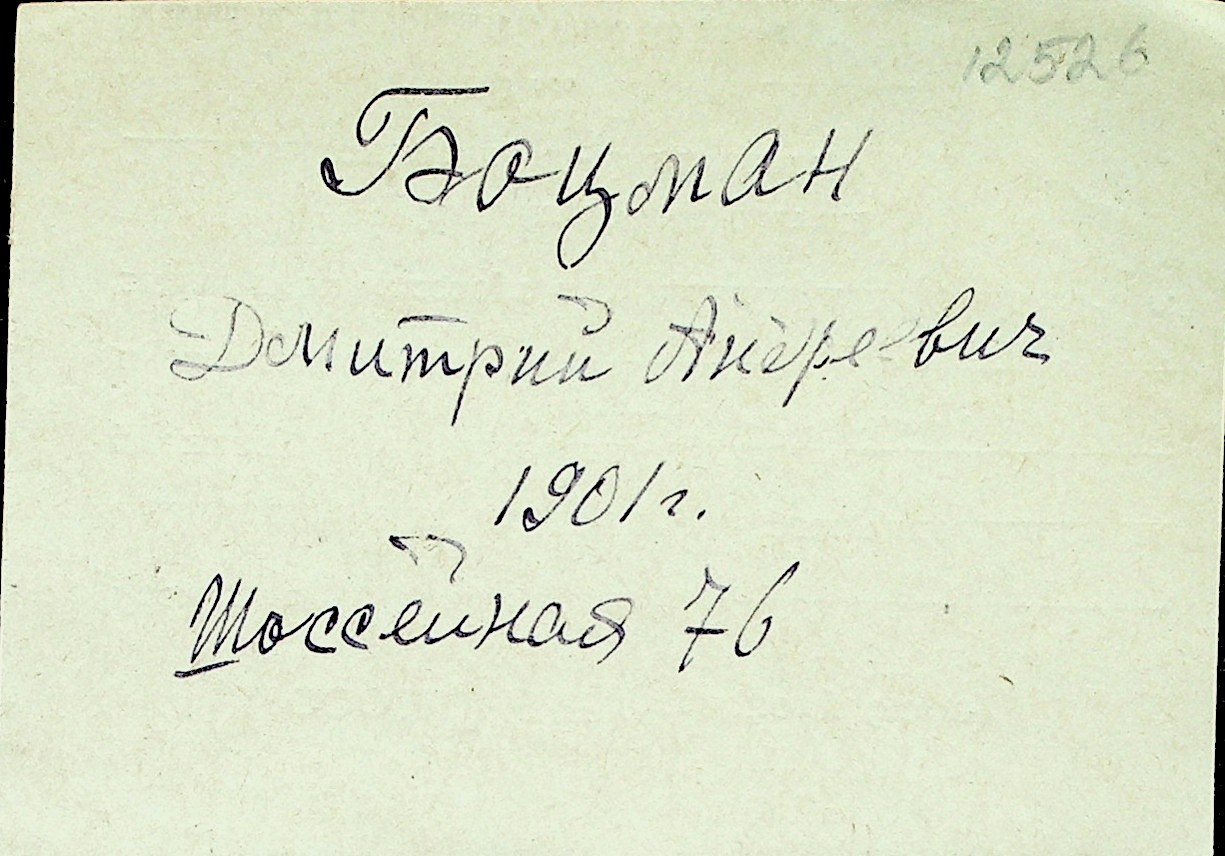 12526
Боцман
Дмитрий Андреевич
1901 г.
Шоссейная 76